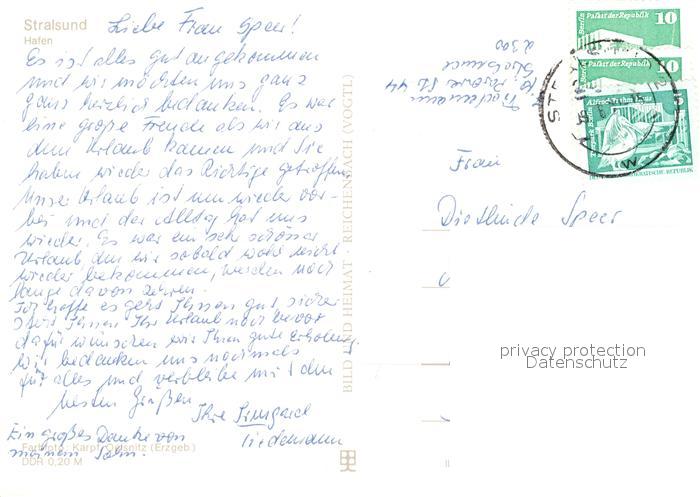 Stralsund
Hafen
Liebe Frau Speer!
Es ist alles gut angekommen
und wir möchten uns ganz
ganz herzlich bedanken. Es war
eine große Freude als wir aus
dem Urlaub kamen und Sie
haben wieder das Richtige getroffen
Unser Urlaub ist nun wieder vor-
bei und der Alltag hat uns
wieder. Es war ein sehr schöner
Urlaub, den wir sobald wohl nicht
wieder bekommen, werden noch
lange davon zehren.
Ich hoffe es geht Ihnen gut, sicher
steht Ihnen Ihr Urlaub noch bevor
dafür wünschen wir Ihnen gute Erholung
Wir bedanken uns nochmals
für alles und verbleibe mit den
besten Grüßen
Ihre Irmgard
Tiedemann
Ein großes Danke von
meinem Sohn.
Farbfoto: Karpf, Oelsnitz (Erzgeb.)
DDR 0,20 M
BILD UND HEIMAT · REICHENBACH (VOGTL)
Tiedemann
Stralsund
2300
Palast der Republik
10
Palast der Republik
Frau
Dietlinde Speer
privacy protection
Datenschutz